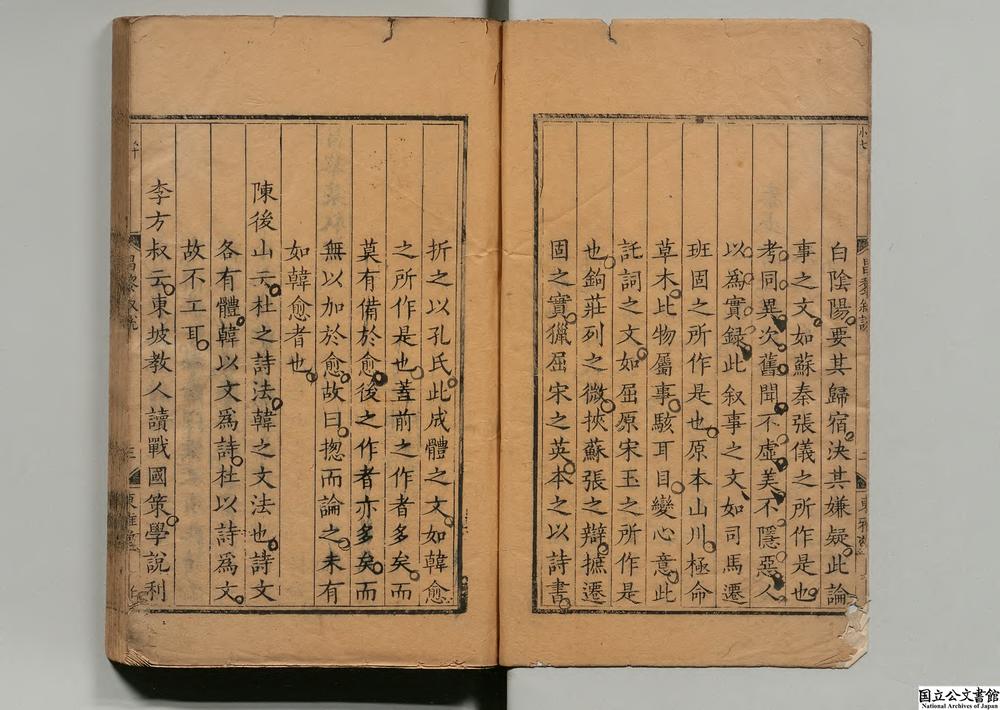 白陰陽要其歸宿決其嫌疑此論
事之文如蘇秦張儀之所作是也
考同異次舊聞不虛美不隱惡人
以爲實録此叙事之文如司馬遷
班固之所作是也原本山川極命
草木比物屬事駭耳目變心意此
託詞之文如屈原宋玉之所作是
也鉤莊列之微挾蘇張之辯摭遷
固之實獵屈宋之英本之以詩書
折之以孔氏此成體之文如韓愈
之所作是也蓋前之作者多矣而
莫有備於愈後之作者亦多矣而
無以加於愈故曰揔而論之未有
如韓愈者也
陳後山云杜之詩法韓之文法也詩文
各有體韓以文爲詩杜以詩爲文
故不工耳
李方叔云東坡教人讀戰國策學說利
昌黎叙說
三
東雅堂
国立公文書館
National Archives of Japan